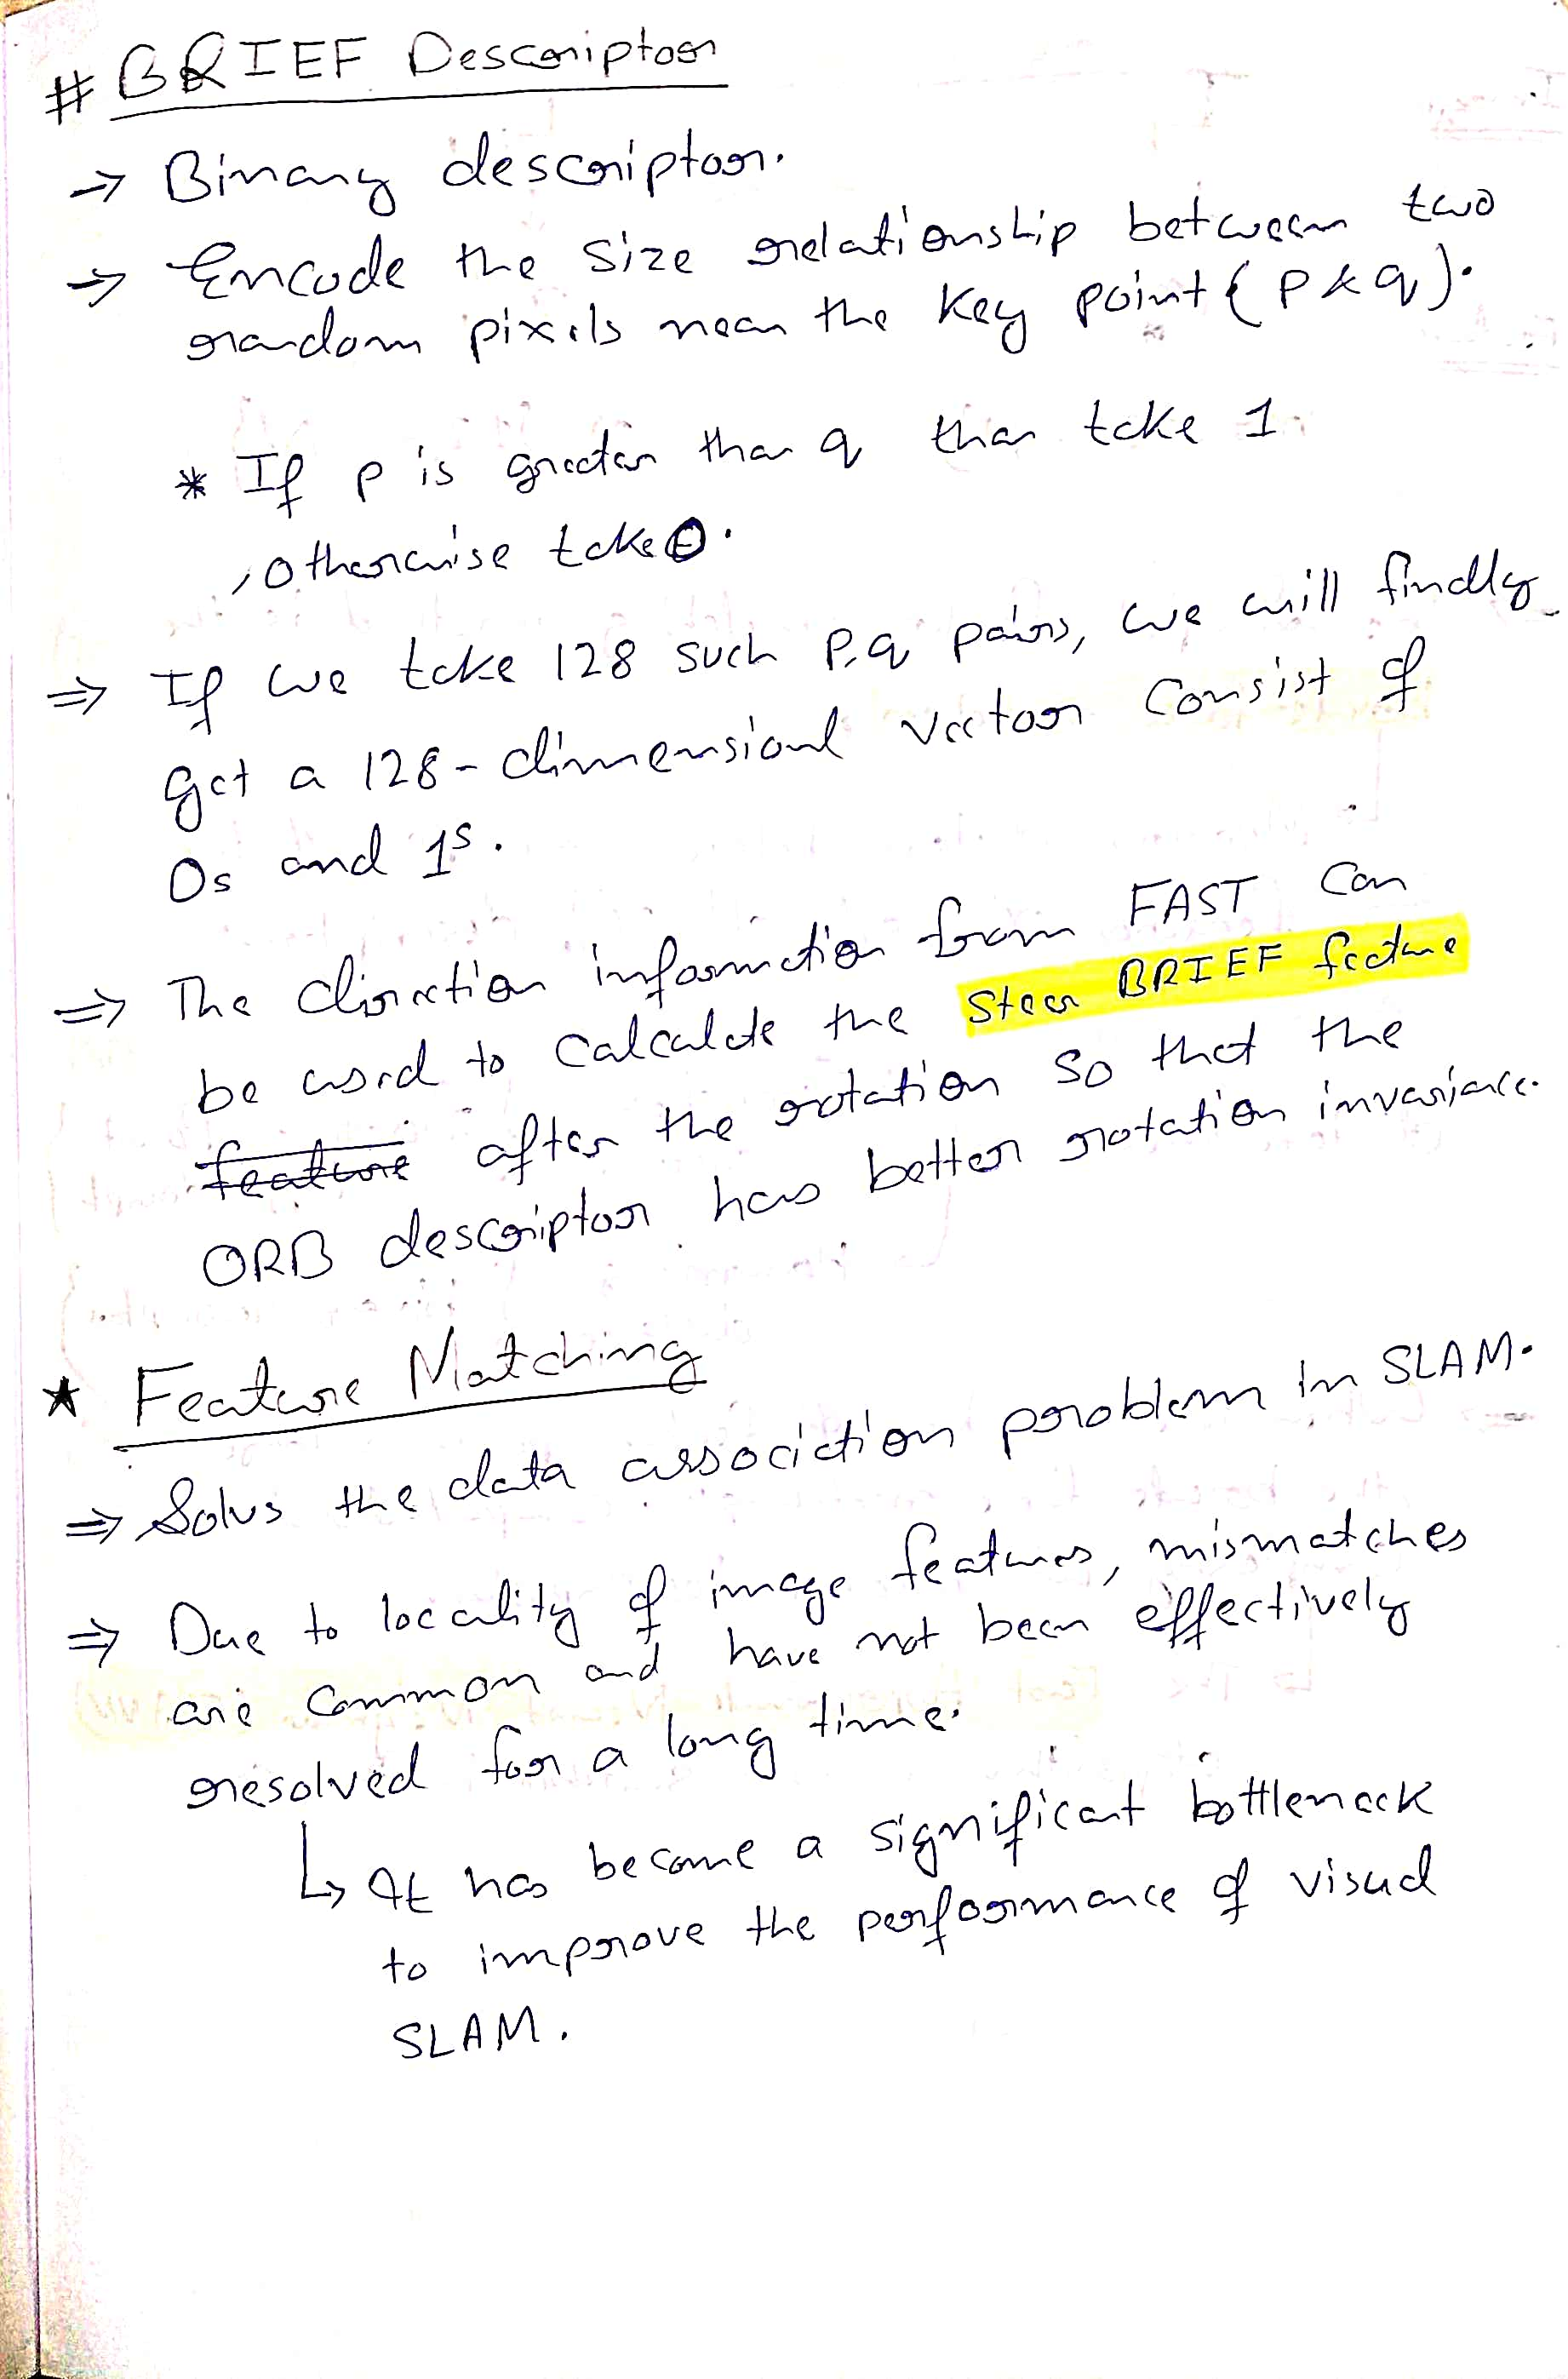 # BRIEF Descriptor
→ Binary descriptor.
→ Encode the size relationship between two
random pixels near the key point (p & q).
* If p is greater than q than take 1
, otherwise take 0.
⇒ If we take 128 such p,q pairs, we will finally
get a 128-dimensional vector consist of
0s and 1s.
⇒ The direction information from FAST can
be used to calculate the Steer BRIEF feature
feature after the rotation so that the
ORB descriptor has better rotation invariance.
★ Feature Matching
⇒ Solves the data association problem in SLAM.
⇒ Due to locality of image features, mismatches
are common and have not been effectively
resolved for a long time.
↳ It has become a significant bottleneck
to improve the performance of visual
SLAM.